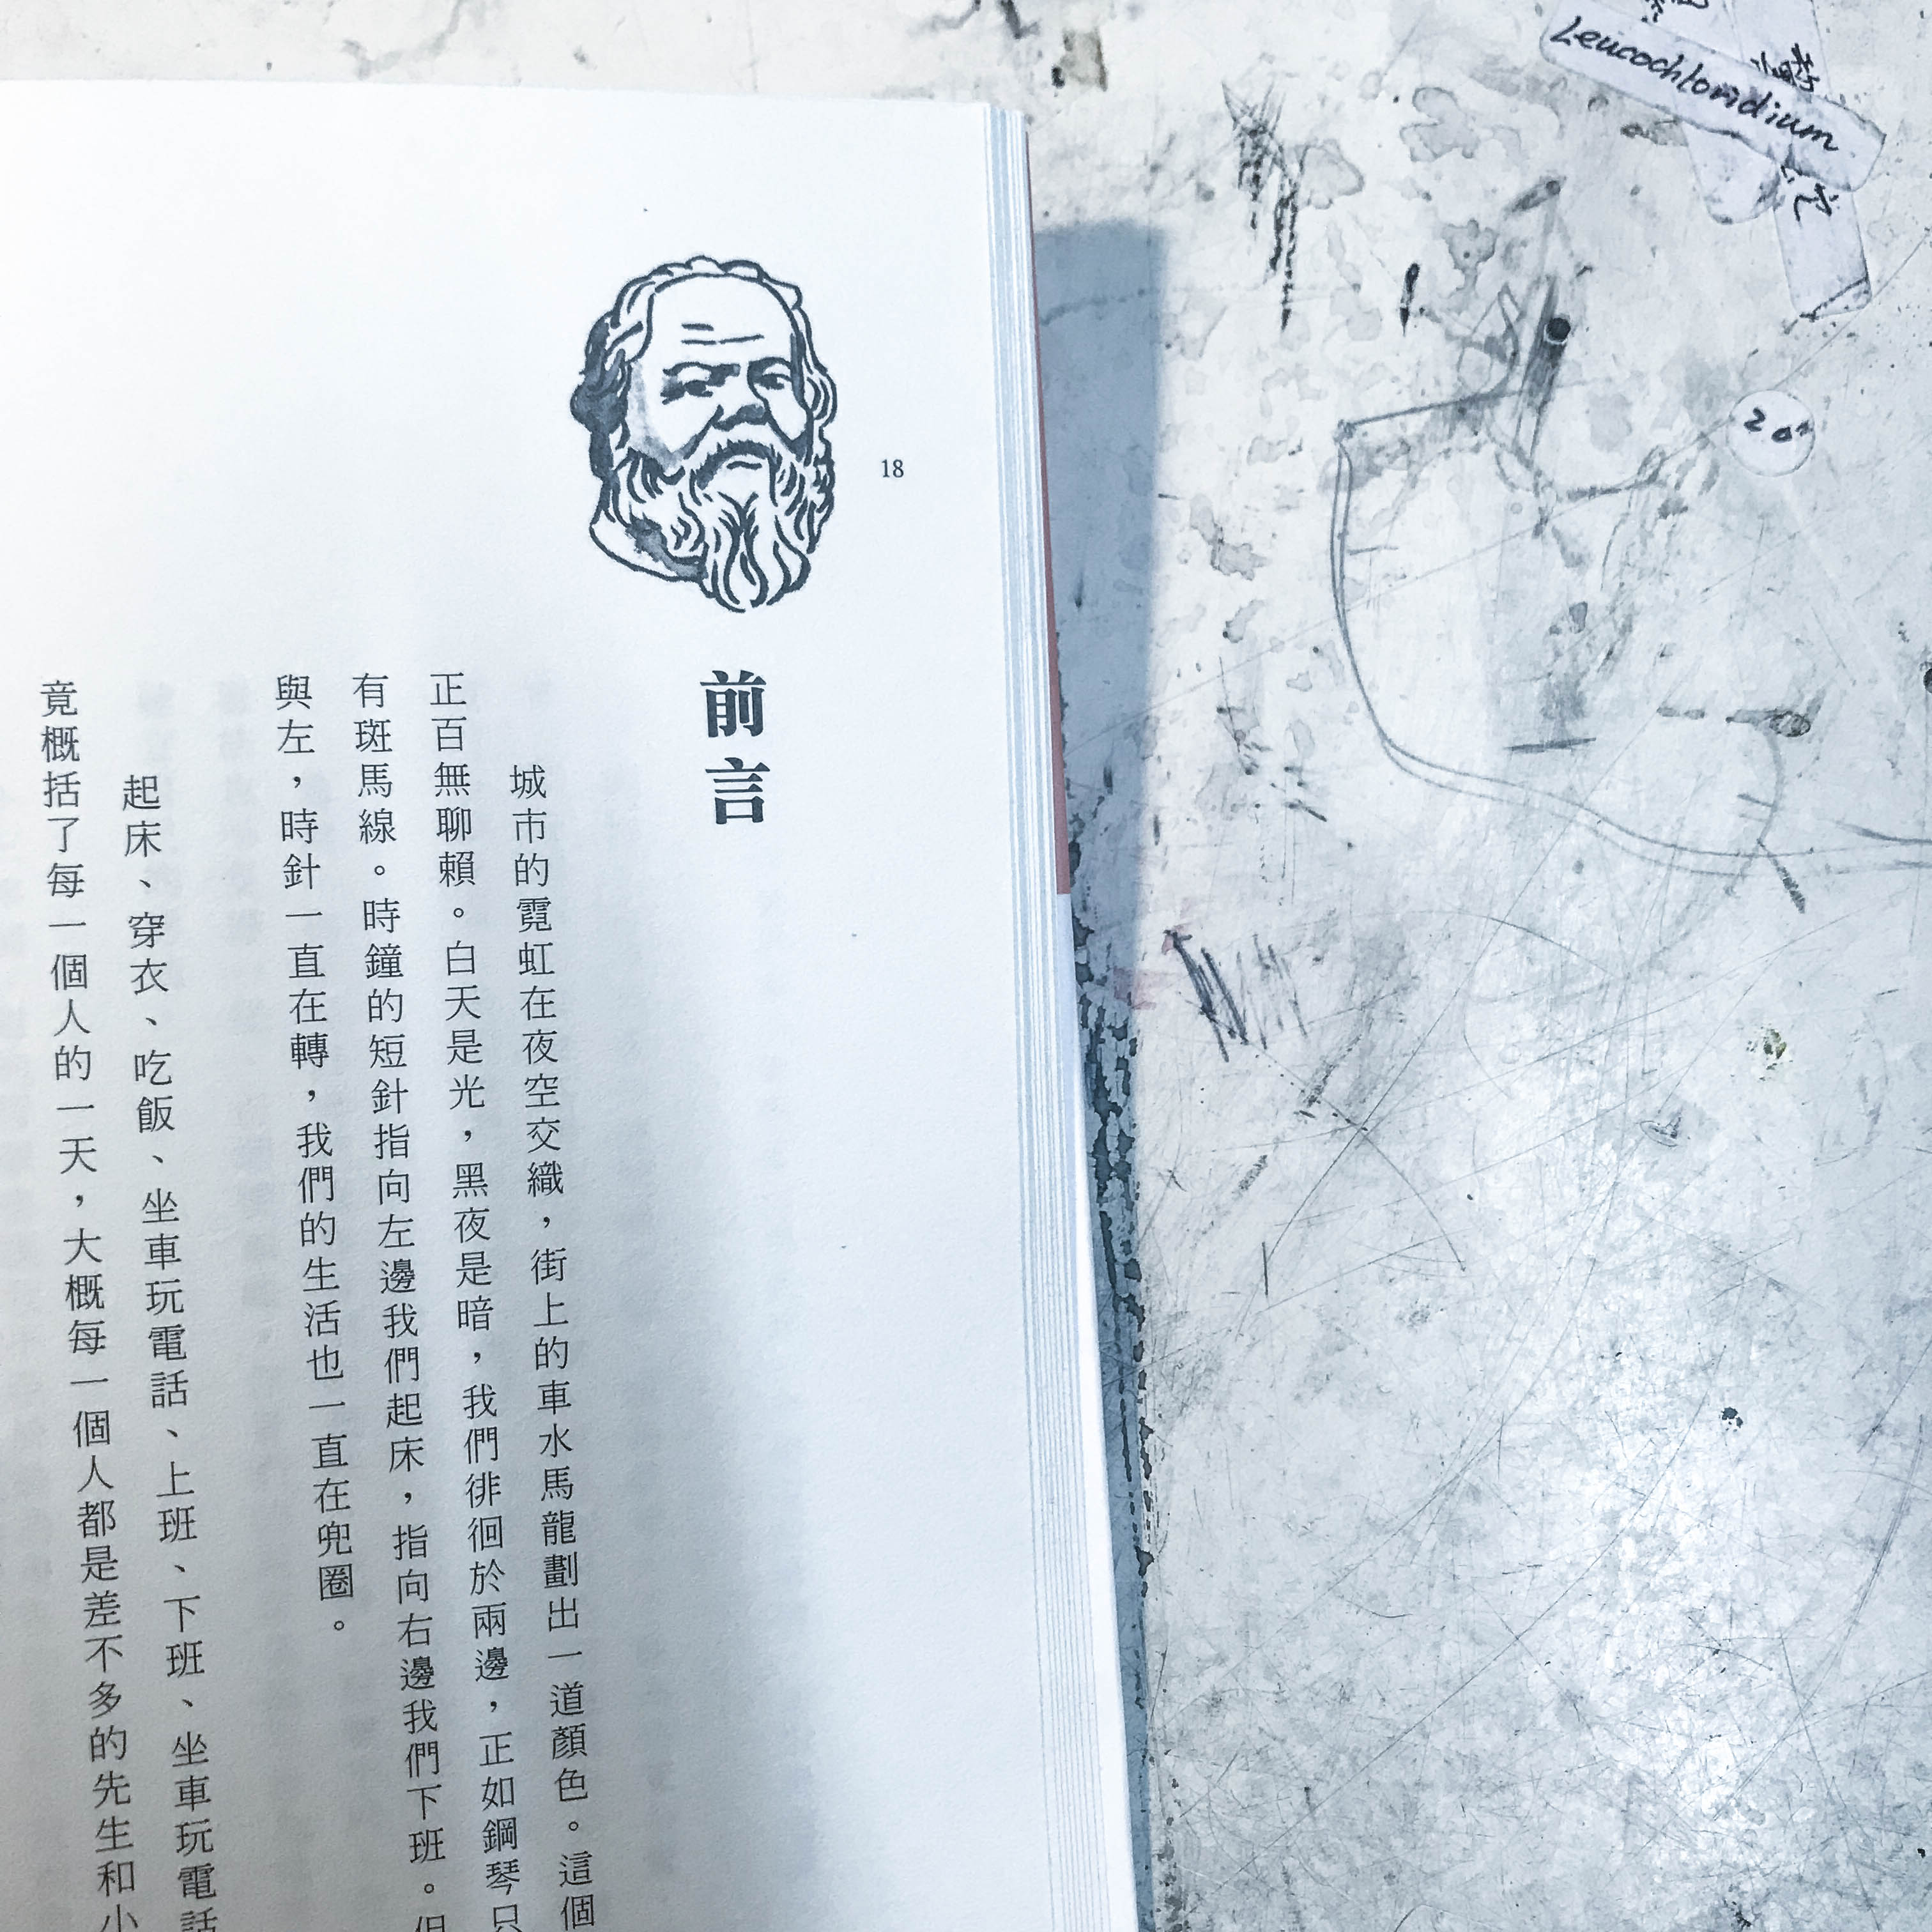 18
前言
城市的霓虹在夜空交織，街上的車水馬龍劃出一道顏色。這個
正百無聊賴。白天是光，黑夜是暗，我們徘徊於兩邊，正如鋼琴只
有斑馬線。時鐘的短針指向左邊我們起床，指向右邊我們下班。但
與左，時針一直在轉，我們的生活也一直在兜圈。
起床、穿衣、吃飯、坐車玩電話、上班、下班、坐車玩電話
竟概括了每一個人的一天，大概每一個人都是差不多的先生和小
Leucochloridium